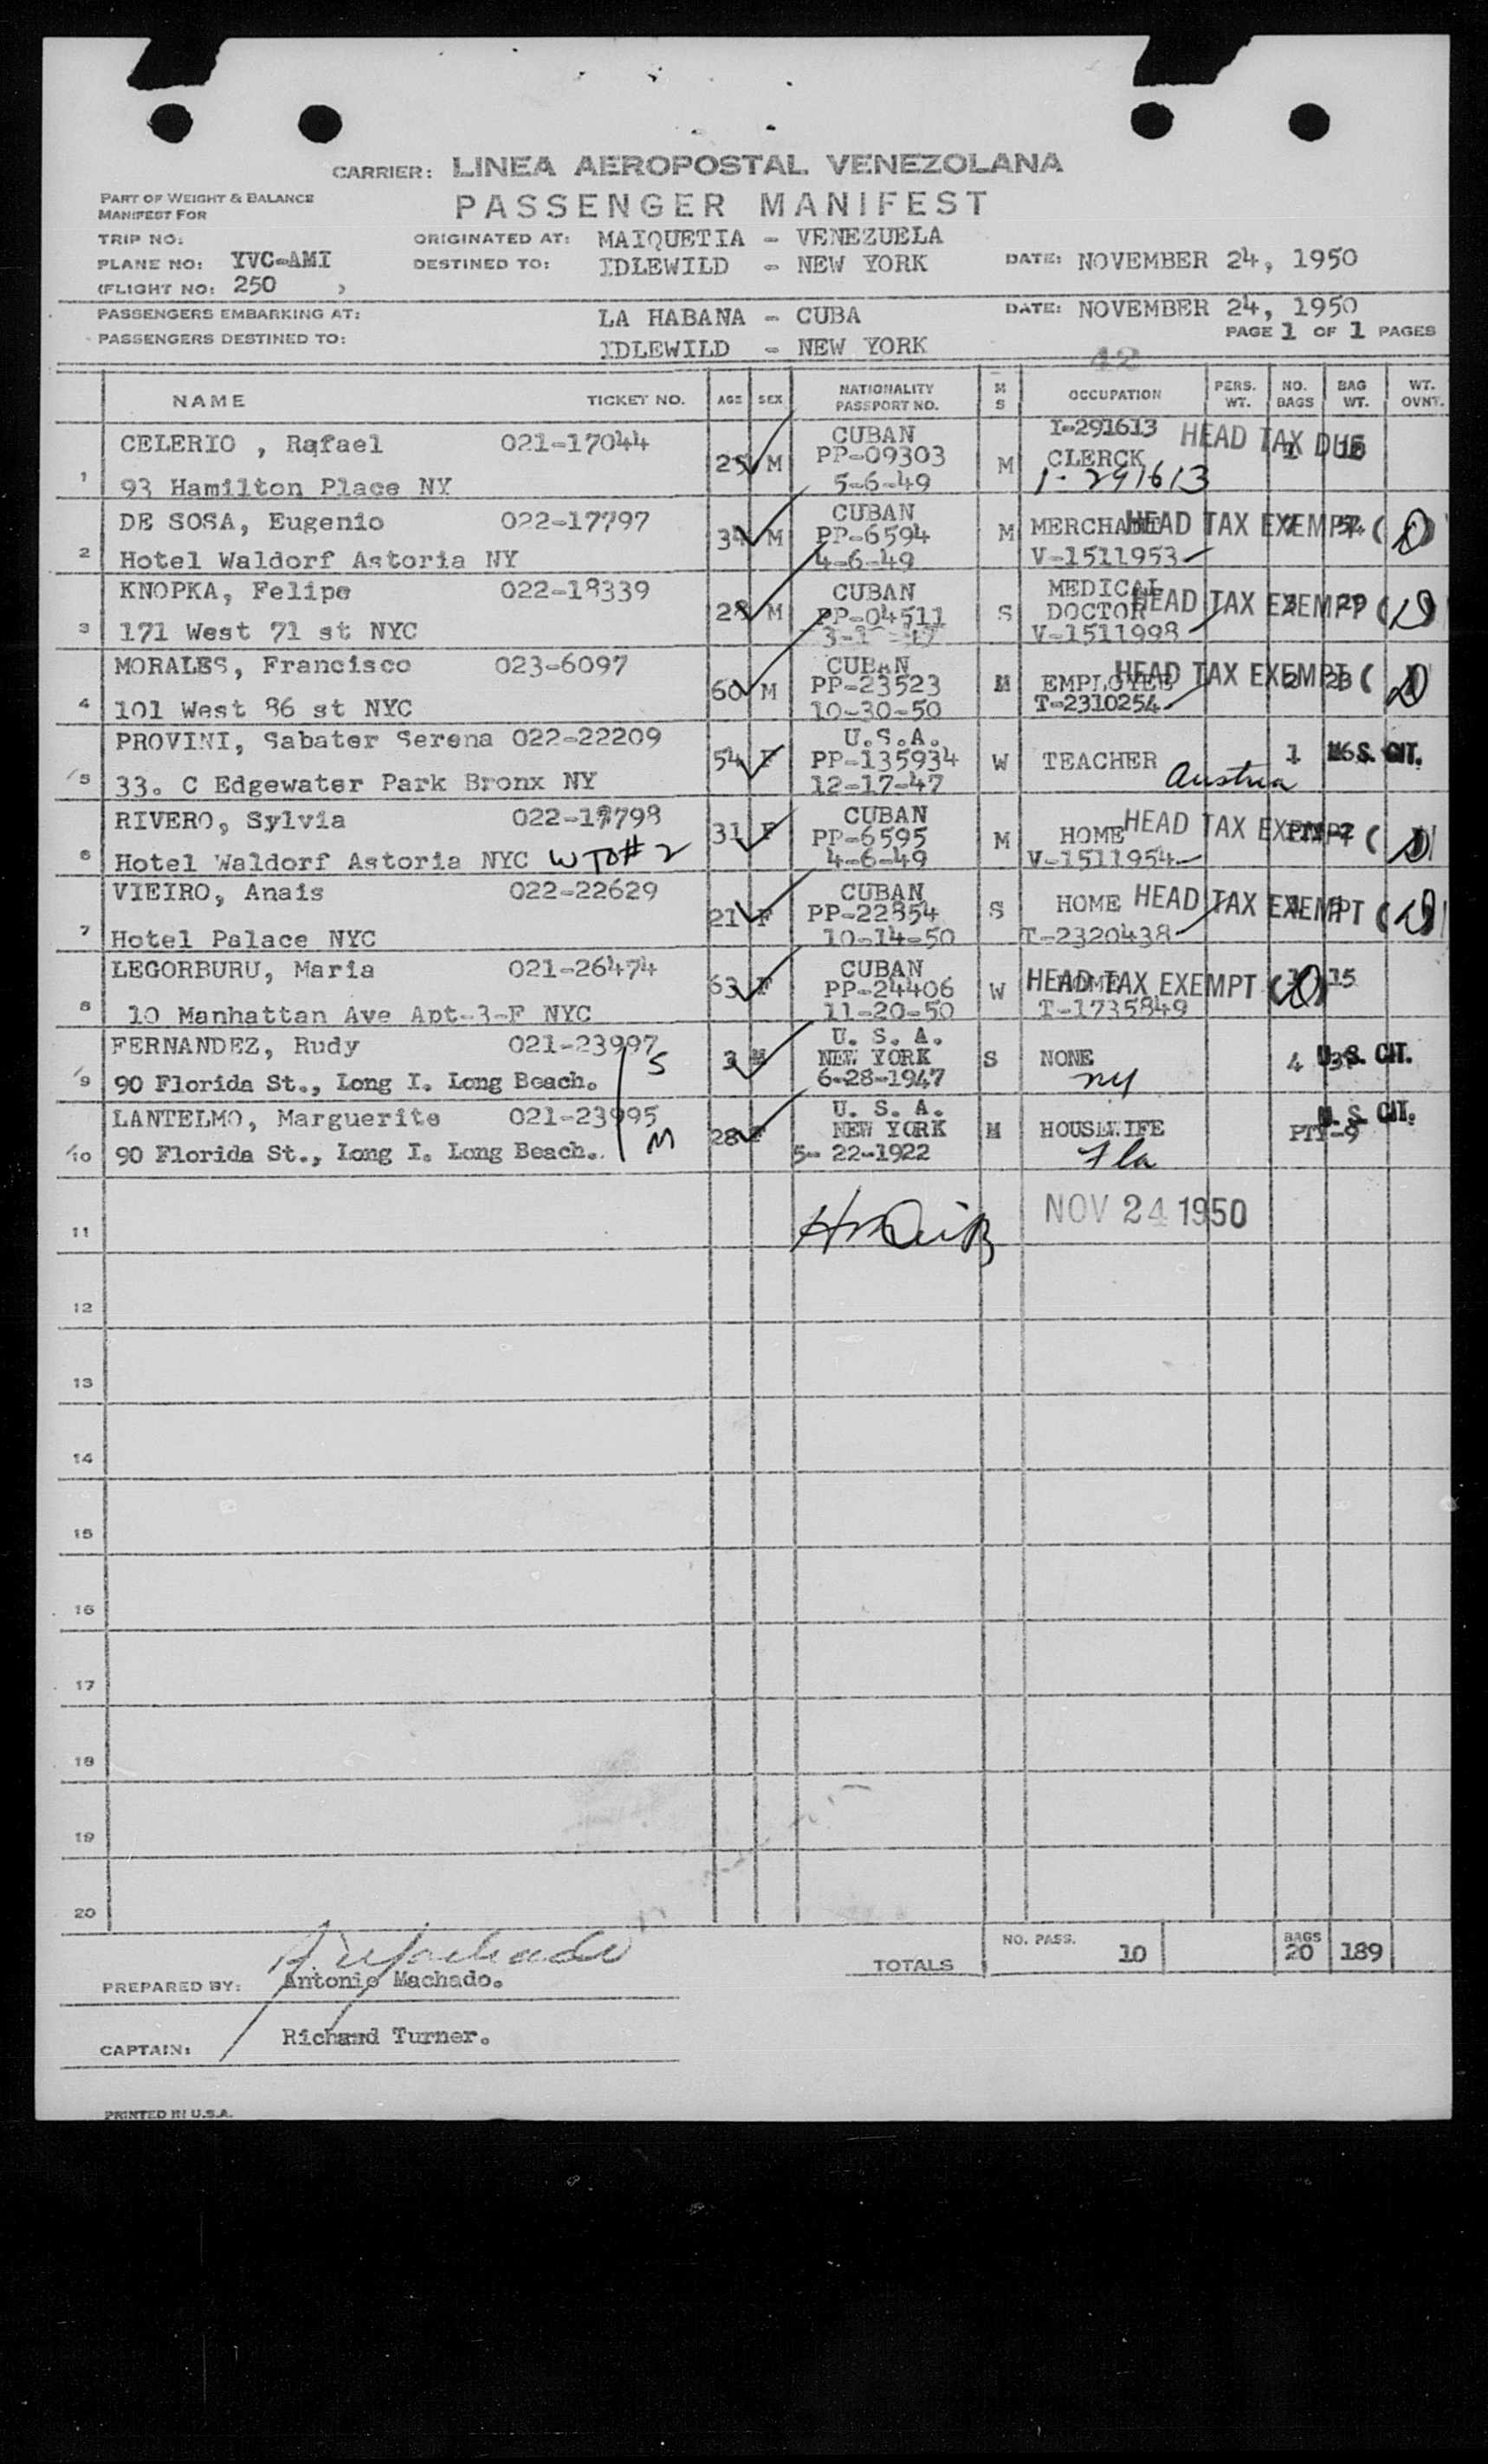 CARRIER: LINEA AEROPOSTAL VENEZOLANA
PART OF WEIGHT & BALANCE
MANIFEST FOR
PASSENGER MANIFEST
TRIP NO:
ORIGINATED AT: MAIQUETIA - VENEZUELA
PLANE NO: YVC-AMI
DESTINED TO: IDLEWILD - NEW YORK
DATE: NOVEMBER 24, 1950
(FLIGHT NO: 250 )
PASSENGERS EMBARKING AT: LA HABANA - CUBA
DATE: NOVEMBER 24, 1950
PAGE 1 OF 1 PAGES
PASSENGERS DESTINED TO: IDLEWILD - NEW YORK
42
NAME TICKET NO. AGE SEX NATIONALITY PASSPORT NO. M S OCCUPATION PERS. WT. NO. BAGS BAG WT. WT. OVNT.
CELERIO , Rafael 021-17044 CUBAN I-291613 HEAD TAX DUE
25 M PP-09303 M CLERCK
1 93 Hamilton Place NY 5-6-49 1-291613
DE SOSA, Eugenio 022-17797 CUBAN
34 M PP-6594 M MERCHANT HEAD TAX EXEMPT
2 Hotel Waldorf Astoria NY 4-6-49 V-1511953
KNOPKA, Felipe 022-18339 CUBAN MEDICAL
28 M PP-04511 S DOCTOR HEAD TAX EXEMPT
3 171 West 71 st NYC V-1511998
MORALES, Francisco 023-6097 CUBAN HEAD TAX EXEMPT
60 M PP-23523 M EMPLOYEE 2 23
4 101 West 86 st NYC 10-30-50 T-2310254
PROVINI, Sabater Serena 022-22209 U.S.A.
54 F PP-135934 W TEACHER 1 U.S. CIT.
5 33. C Edgewater Park Bronx NY 12-17-47 Austria
RIVERO, Sylvia 022-17798 CUBAN
31 F PP-6595 M HOME HEAD TAX EXEMPT
6 Hotel Waldorf Astoria NYC W TO # 2 4-6-49 V-1511954
VIEIRO, Anais 022-22629 CUBAN
21 F PP-22854 S HOME HEAD TAX EXEMPT
7 Hotel Palace NYC 10-14-50 T-2320438
LEGORBURU, Maria 021-26474 CUBAN
63 F PP-24406 W HOME HEAD TAX EXEMPT 15
8 10 Manhattan Ave Apt-3-F NYC 11-20-50 T-1735849
FERNANDEZ, Rudy 021-23997 S U. S. A.
3 M NEW YORK S NONE 4 U. S. CIT.
9 90 Florida St., Long I. Long Beach. 6-28-1947 NY
LANTELMO, Marguerite 021-23995 U. S. A. U. S. CIT.
28 F NEW YORK M HOUSEWIFE PTY-9
10 90 Florida St., Long I. Long Beach. M 5- 22-1922 Fla
NOV 24 1950
11
12
13
14
15
16
17
18
19
20
TOTALS NO. PASS. 10 BAGS 20 189
PREPARED BY: Antonio Machado.
CAPTAIN: Richard Turner.
PRINTED IN U.S.A.